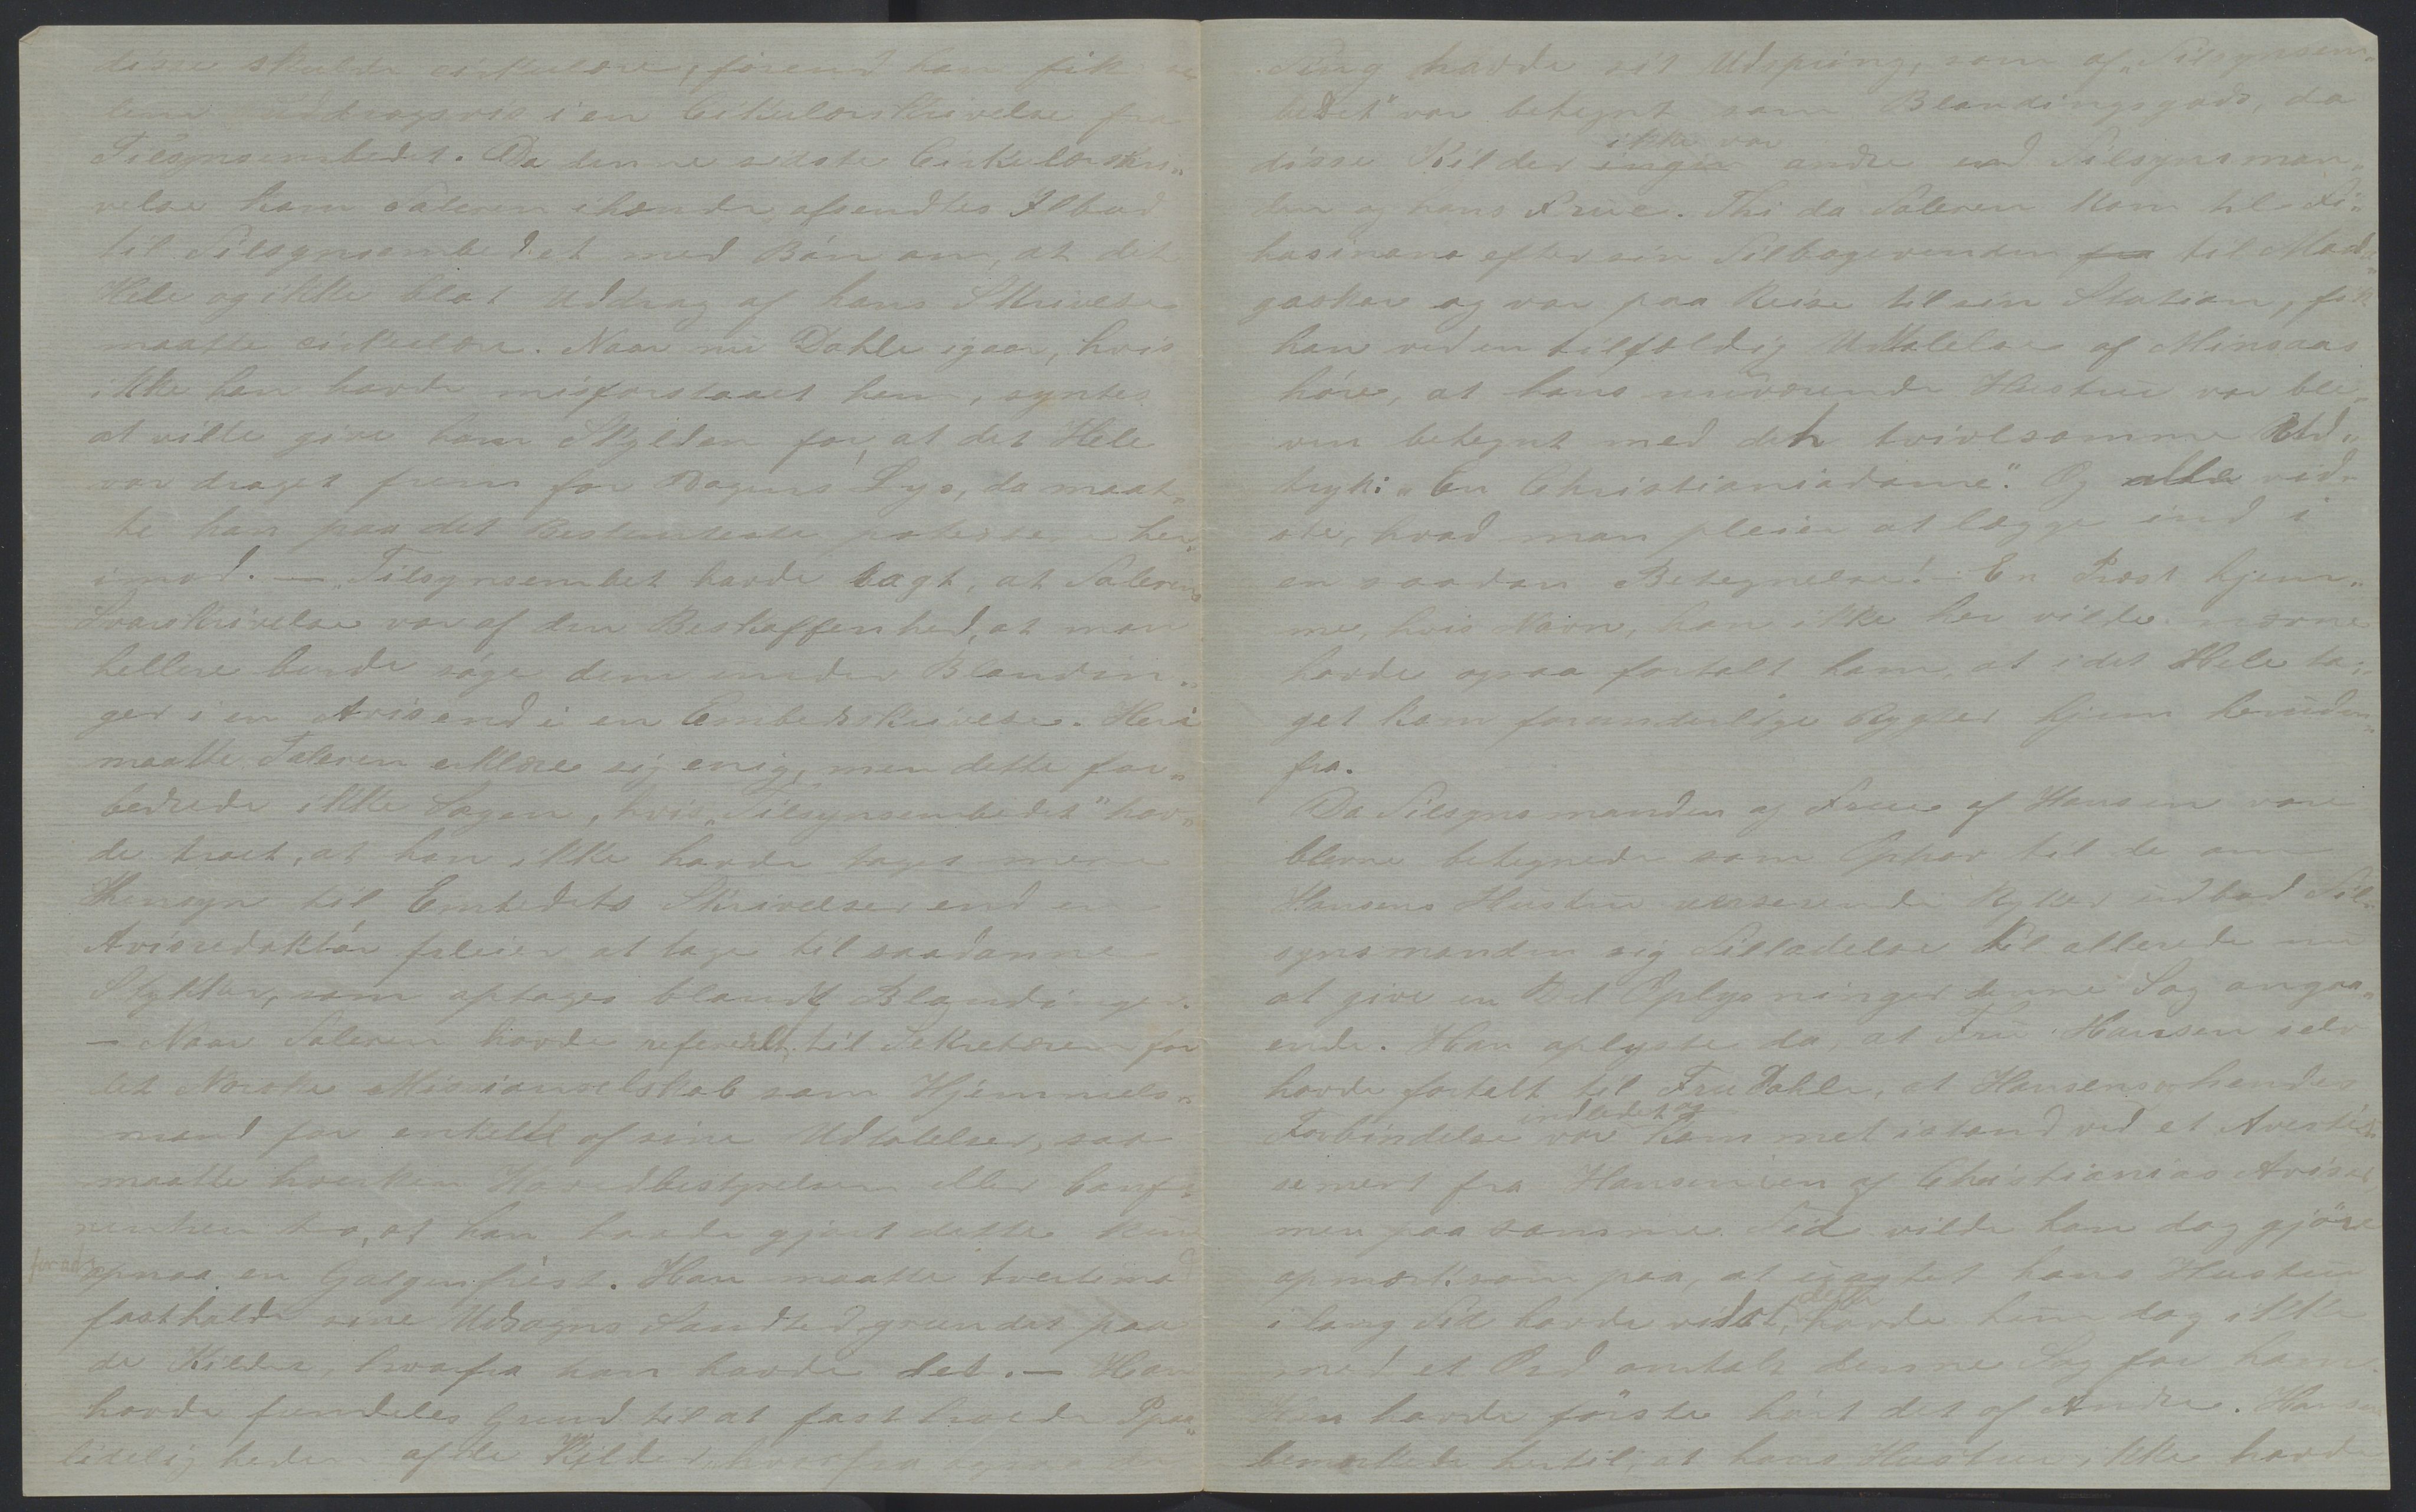 disse skulde cirkulere, førend han fik se
dem uddragsvis i en Cirkulærskrivelse fra
Tilsynsembedet. Da denne sidste Cirkulærskri„
velse kom Taleren ihænde, afsendtes Ilbud
til Tilsynsembedet med Bøn om, at det
Hele og ikke blot Uddrag af hans Skrivelse
maatte cirkulere. Naar nu Dahle igaar, hvis
ikke han havde misforstaaet ham, syntes
at ville give ham Skylden for, at det Hele
var draget frem for Dagens Lys, da maat„
te han paa det Bestemteste protestere her„
imod. — „Tilsynsembet havde sagt, at Talerens
Svarskrivelse var af den Beskaffenhed, at man
hellere burde søge dem under Blandin„
ger i en Avis end i en Embedsskrivelse. Heri
maatte Taleren erklære sig enig, men dette for„
bedrede ikke Sagen, hvis „Tilsynsembedet" hav„
de troet, at han ikke havde taget mere
Hensyn til Embedets Skrivelser end en
Avisredaktør pleier at tage til saadanne
Stykker, som optages blandt Blandinger.
— Naar Taleren havde refereret til Sekretæren for
det Norske Missionsselskab som Hjemmels„
mand for enkelte af sine Udtalelser, saa
maatte hverken Hovedbestyrelsen eller Conf„
rentsen tro, at han havde gjort dette kun
for at
opnaa en Galgenfrist. Han maatte tvertimod
fastholde sine Udsagns Sandhed grundet paa
de Kilder, hvorfra han havde det. — Han
havde fremdeles Grund til at fastholde Paa„
lideligheden af de Kilder, hvorfra ogsaa de
Ting havde sit Udspring, som af „Tilsynsem„
bedet" var betegnet som Blandingsgods, da
ikke var
disse Kilder ingen andre end Tilsynsman„
den og hans Frue. Thi da Taleren kom til Fi„
hasinana efter sin Tilbagevenden fra til Mada„
gaskar og var paa Reise til sin Station, fik
han ved en tilfældig Udtalelse af Minsaas
høre, at hans nuværende Hustru var ble„
ven betegnet med det tvivlsomme Ud„
tryk: „En Christianiadame". Og alle vid„
ste, hvad man pleier at lægge ind i
en saadan Betegnelse! En Præst hjem„
me, hvis Navn, han ikke her vilde nævne
havde ogsaa fortalt ham, at i det Hele ta„
get kom forunderlige Rygter hjem heruden„
fra.
Da Tilsynsmanden og Frue af Hansen vare
blevne betegnede som Ophav til de om
Hansens Hustru verserende Rykter udbad Til„
synsmanden sig Tilladelse til allerede nu
at give en Del Oplysninger denne Sag angaa„
ende. Han oplyste da, at Fru Hansen selv
havde fortalt til Fru Dahle, at Hansens og hendes
indledet og
Forbindelse var kommet istand ved et Avertis„
sement fra Hansen i en af Christianias Aviser
men paa samme Tid vilde han dog gjøre
opmærksom paa, at uagtet hans Hustru
dette
i lang Tid havde vidst, havde hun dog ikke
med et Ord omtalt denne Sag for ham.
Han havde første hørt det af Andre. Hansen
bemærkede hertil, at hans Hustru ikke havde